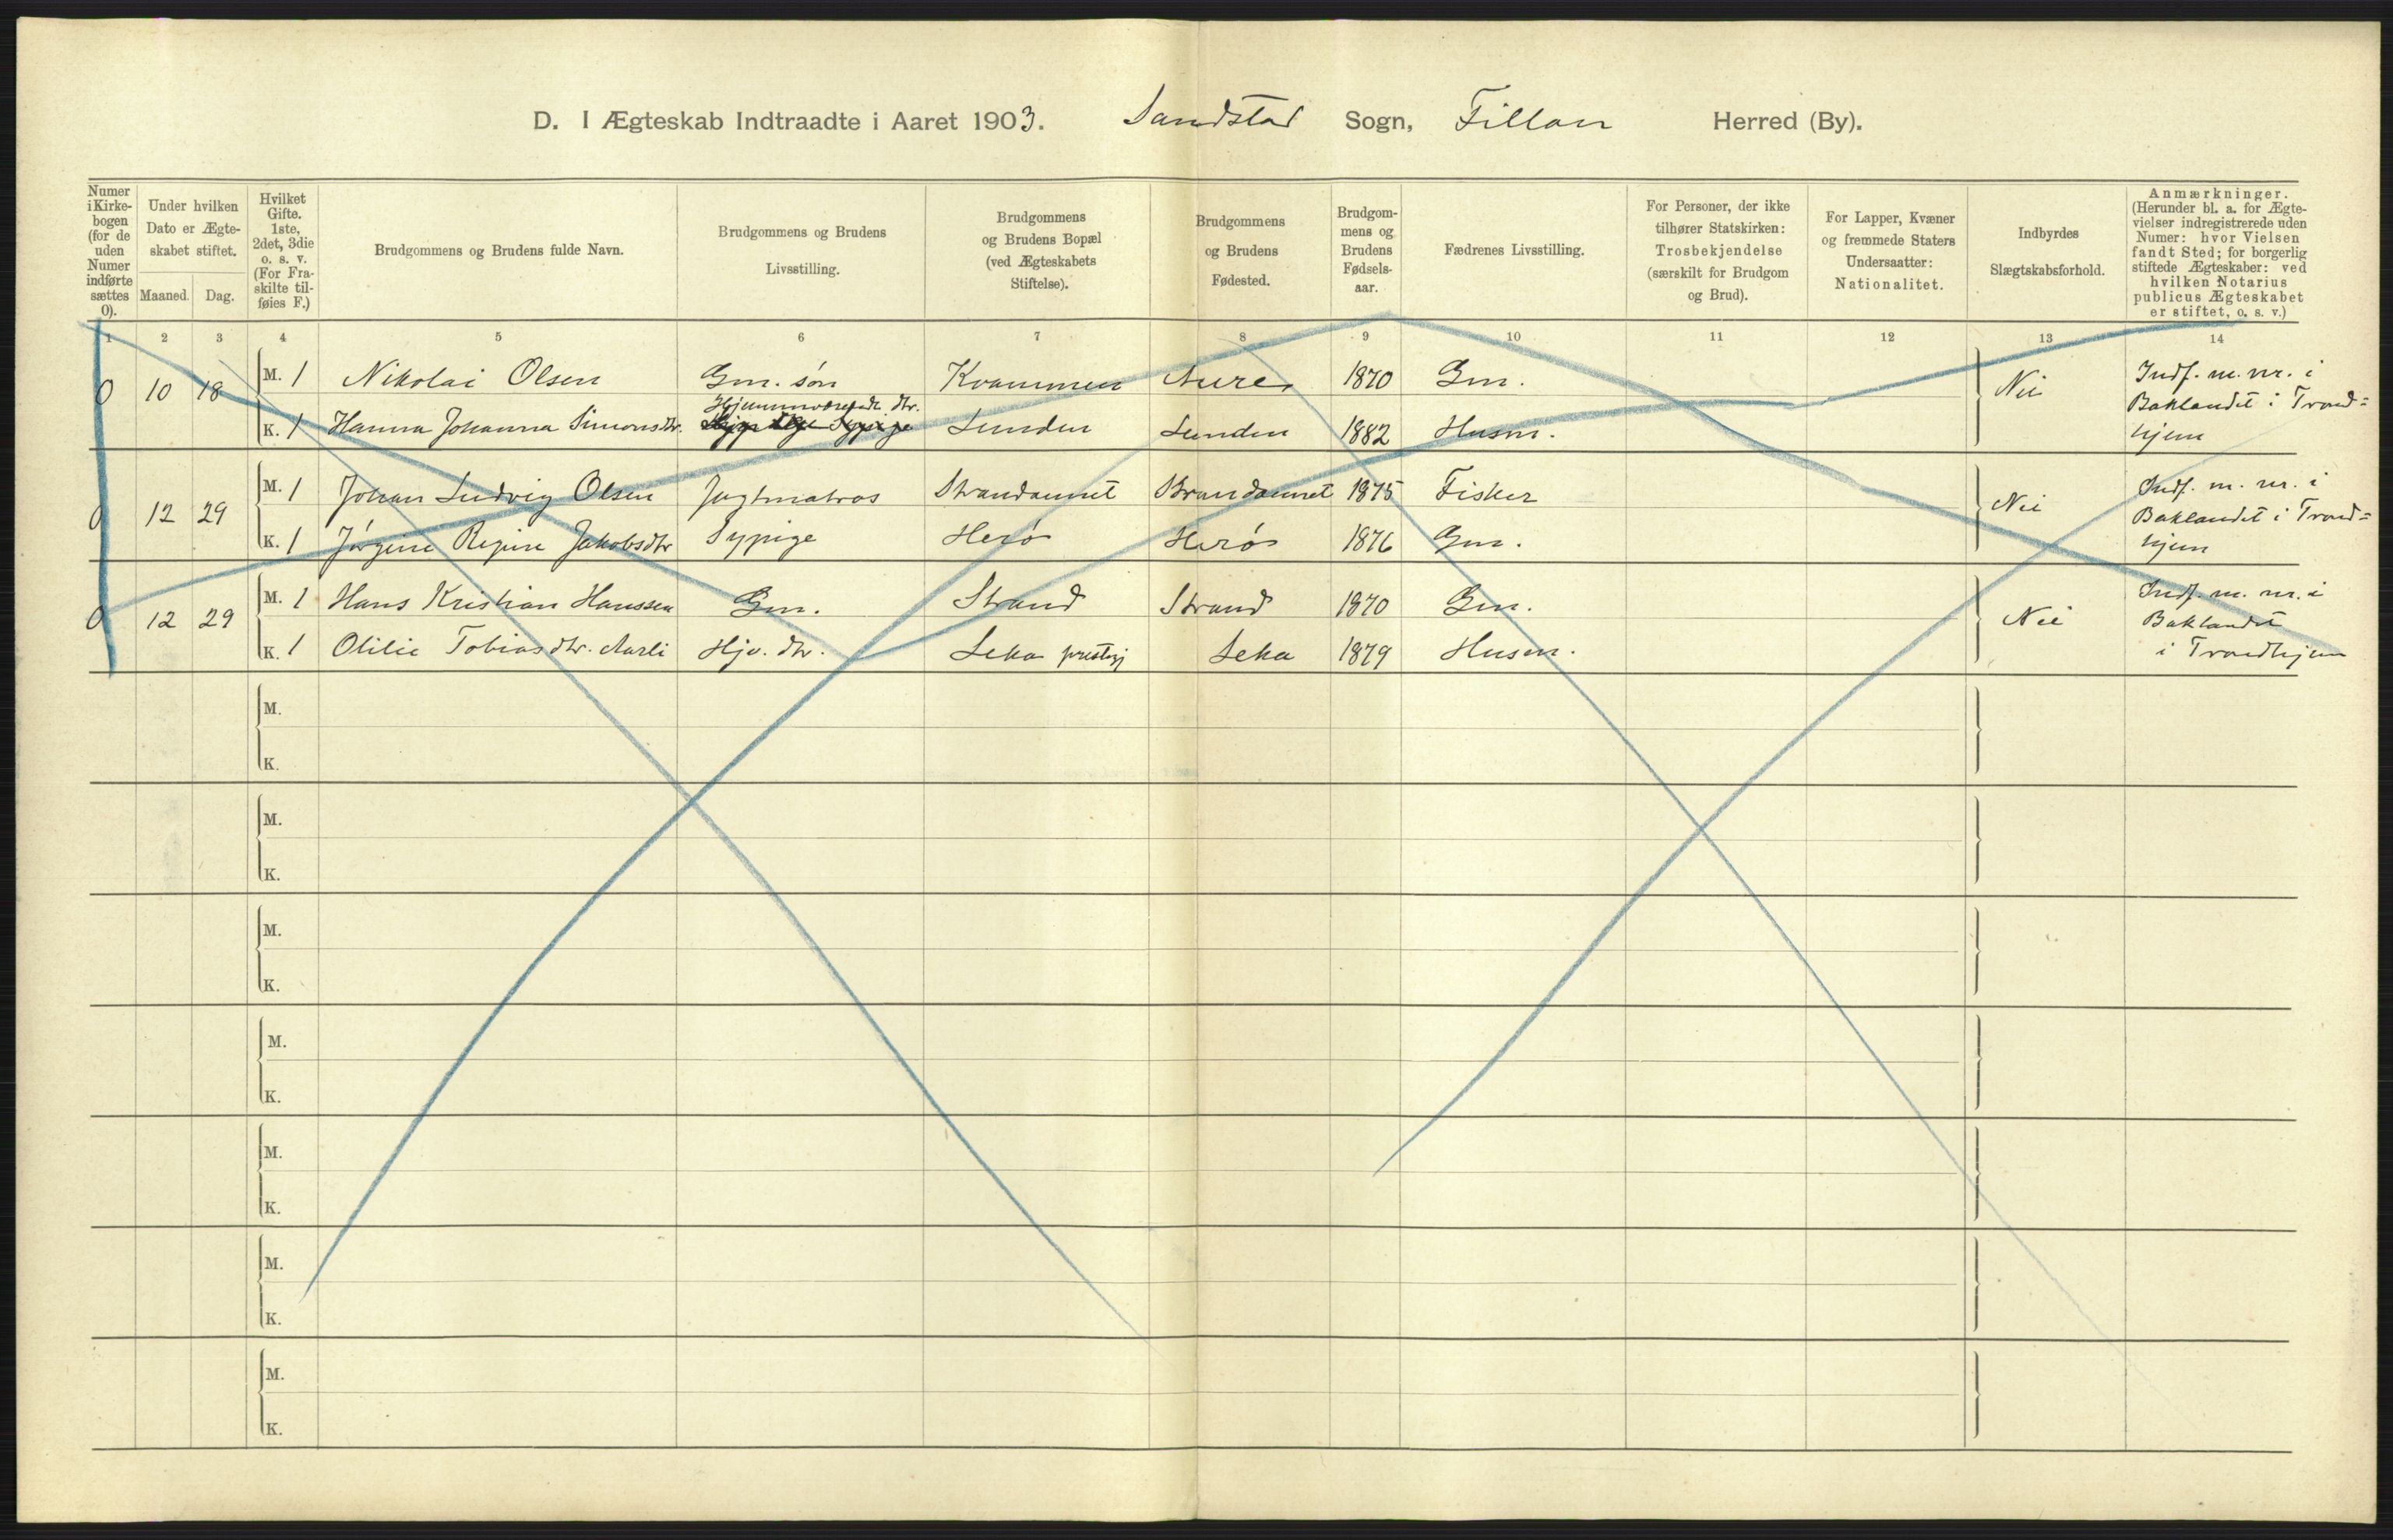 D. I Ægteskab Indtraadte i Aaret 1903. Sandstad Sogn, Fillan Herred (By).
Numer i Kirke-bogen (for de uden Numer indførte sættes 0).
Under hvilken Dato er Ægte-skabet stiftet.
Maaned. Dag.
Hvilket Gifte. 1ste, 2det, 3die o. s. v. (For Fra-skilte til-føies F.)
Brudgommens og Brudens fulde Navn.
Brudgommens og Brudens Livsstilling.
Brudgommens og Brudens Bopæl (ved Ægteskabets Stiftelse).
Brudgommens og Brudens Fødested.
Brudgom-mens og Brudens Fødsels-aar.
Fædrenes Livsstilling.
For Personer, der ikke tilhører Statskirken: Trosbekjendelse (særskilt for Brudgom og Brud).
For Lapper, Kvæner og fremmede Staters Undersaatter: Nationalitet.
Indbyrdes Slægtskabsforhold.
Anmærkninger. (Herunder bl. a. for Ægte-vielser indregistrerede uden Numer: hvor Vielsen fandt Sted; for borgerlig stiftede Ægteskaber: ved hvilken Notarius publicus Ægteskabet er stiftet, o. s. v.)
1 2 3 4 5 6 7 8 9 10 11 12 13 14
0 10 18 M. 1 Nikolai Olsen Gm. søn Kvammen Aure 1870 Gm. Nei Indf. m. nr. i Baklandet i Trond=hjem
K. 1 Hanna Johanna Simonsdtr. Hjemmeværende dtr. Lunden Lunden 1882 Husm.
0 12 29 M. 1 Johan Ludvig Olsen Jagtmatros Strandannet Strandannet 1875 Fisker Nei Indf. m. nr. i Baklandet i Trond=hjem
K. 1 Jørgine Regine Jakobsdtr Sypige Herø Herø 1876 Gm.
0 12 29 M. 1 Hans Kristian Hanssen Gm. Strand Strand 1870 Gm. Nei Indf. m. nr. i Baklandet i Trondhjem
K. 1 Olilie Tobiasdtr. Aarli Hjv. dtr. Leka prestegj Leka 1879 Husm.
M.
K.
M.
K.
M.
K.
M.
K.
M.
K.
M.
K.
M.
K.